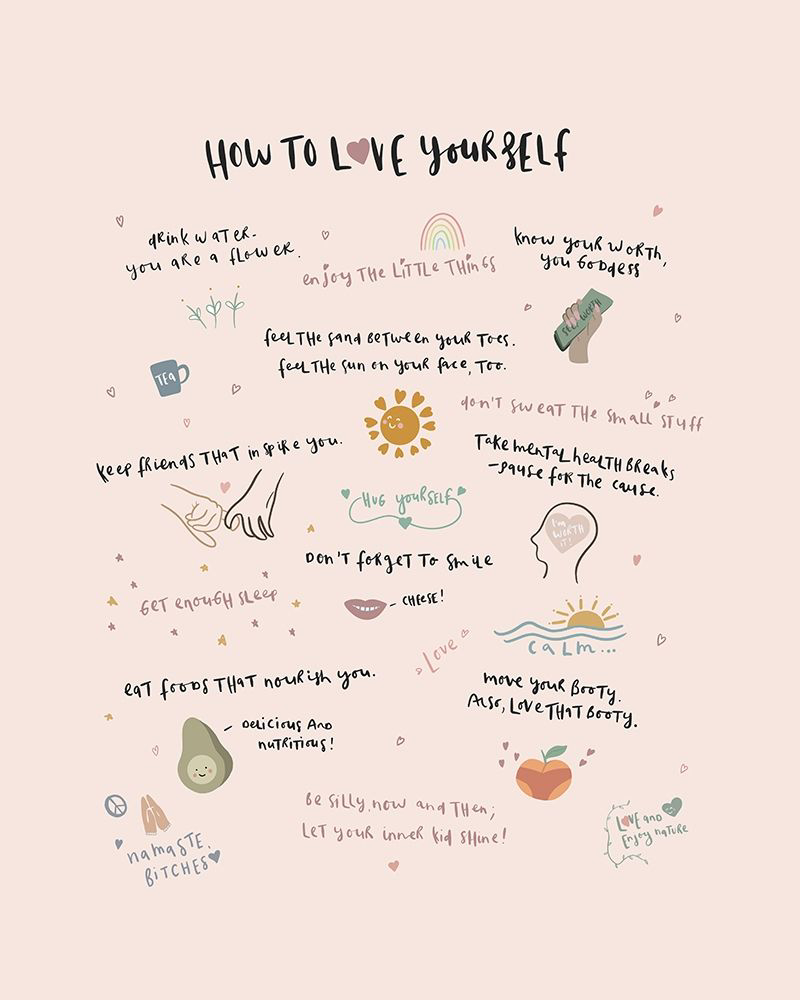 HOW TO LOVE YOURSELF
drink water-
you are a flower.
enjoy THE LiTTLe THinGS
know your worth,
you GoDDess
SELF WORTH
feel THe sand BeTween your Toes.
feel THe sun on your face, Too.
TEA
don't sweat THe small stuff
keep friends THaT inspire you.
Take menTal healTH Breaks
-pause for THe cause.
HUG YOURSELF
I'm
WORTH
iT!
DON'T forgeT To smile
GeT enough sleep
- CHEESE!
CALM...
Love
eaT foods THaT nourish you.
move your BooTy.
ALSO, LOVE THAT BOOTY.
- DELiCiOUS AND
nuTRiTiOUS!
Be silly, now and THen;
LeT your inner kid SHine!
LOVE and
Enjoy naTuRe
namaSTe,
BiTCHES